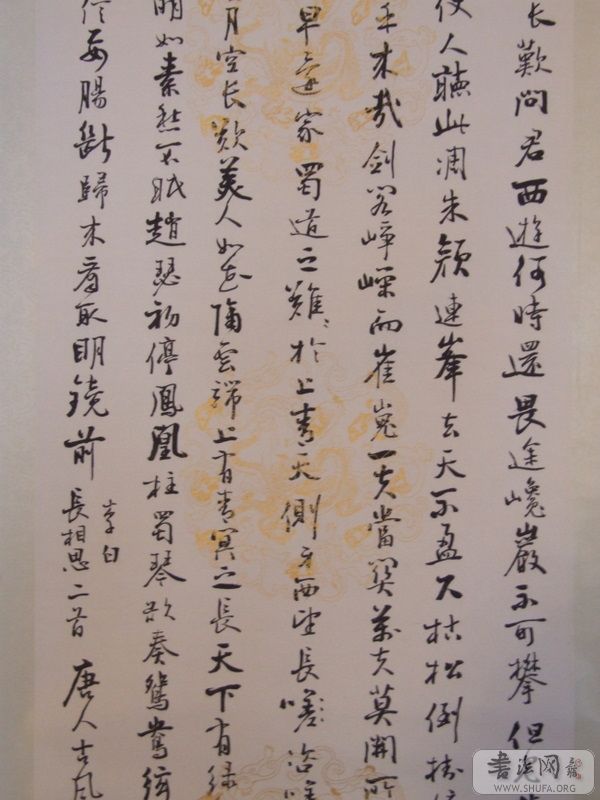 长歎問君西遊何時還畏途巉巖不可攀但
使人聽此凋朱顔連峯去天不盈尺枯松倒掛
乎来哉剑阁峥嵘而崔嵬一夫當関萬夫莫開所
早還家蜀道之難於上青天側身西望長嗟
月空长歎美人如花隔雲端上有青冥之長天下有緑
明如素愁不眠趙瑟初停鳳凰柱蜀琴欲奏鴛鴦絃
信妾腸斷歸来看取明鏡前 長相思二首 唐人古風
李白
書法网
WWW.SHUFA.ORG